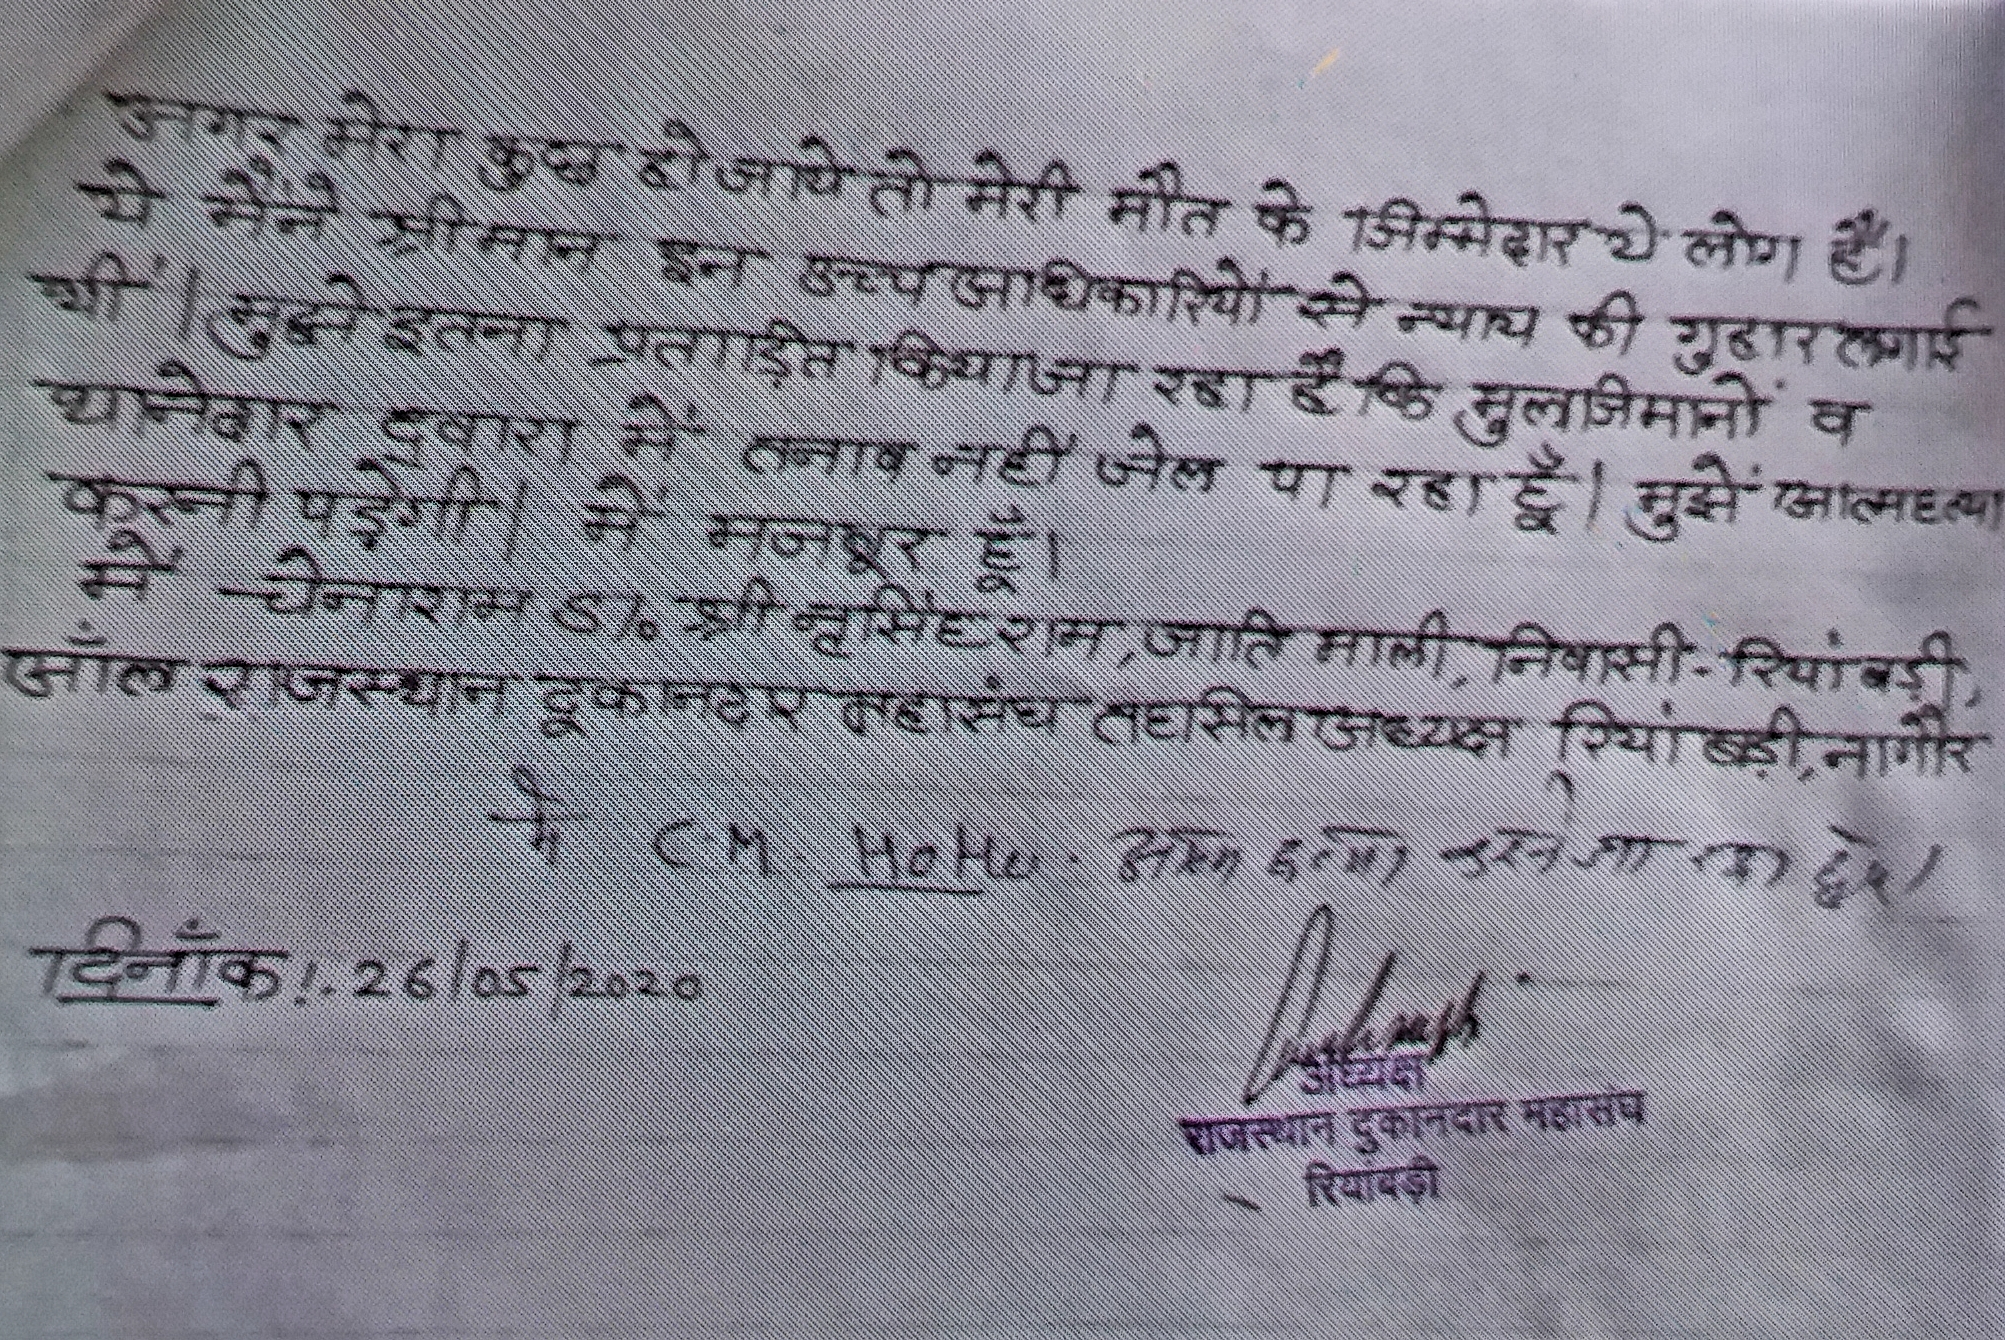 अगर मेरा कुछ हो जाये तो मेरी मौत के जिम्मेदार ये लोग हैं।
ये मैंने श्रीमान इन उच्च अधिकारियों से न्याय की गुहार लगाई
थीं। मुझे इतना प्रताड़ित किया जा रहा हैं कि मुलजिमानों व
थानेदार दुवारा में तनाव नहीं जेल पा रहा हूँ। मुझें आत्महत्या
करनी पड़ेगी। में मजबूर हूँ।
में चेनाराम S/o श्री नृसिंहराम, जाति माली, निवासी- रियांबड़ी,
ऑल राजस्थान दूकानदार महासंघ तहसिल अध्यक्ष रियां बड़ी, नागौर
मै CM. HoMe. आत्म हत्या करने जा रहा
दिनाँक:. 26/05/2020
अध्यक्ष
राजस्थान दुकानदार महासंघ
रियांबड़ी